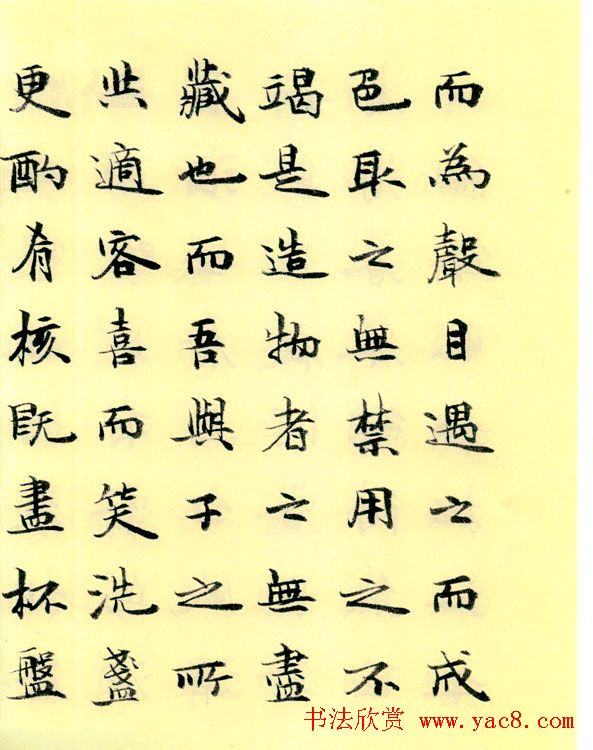 而為聲目遇之而成
色取之無禁用之不
竭是造物者之無盡
藏也而吾與子之所
共適客喜而笑洗盞
更酌肴核既盡杯盤
书法欣赏 www.yac8.com